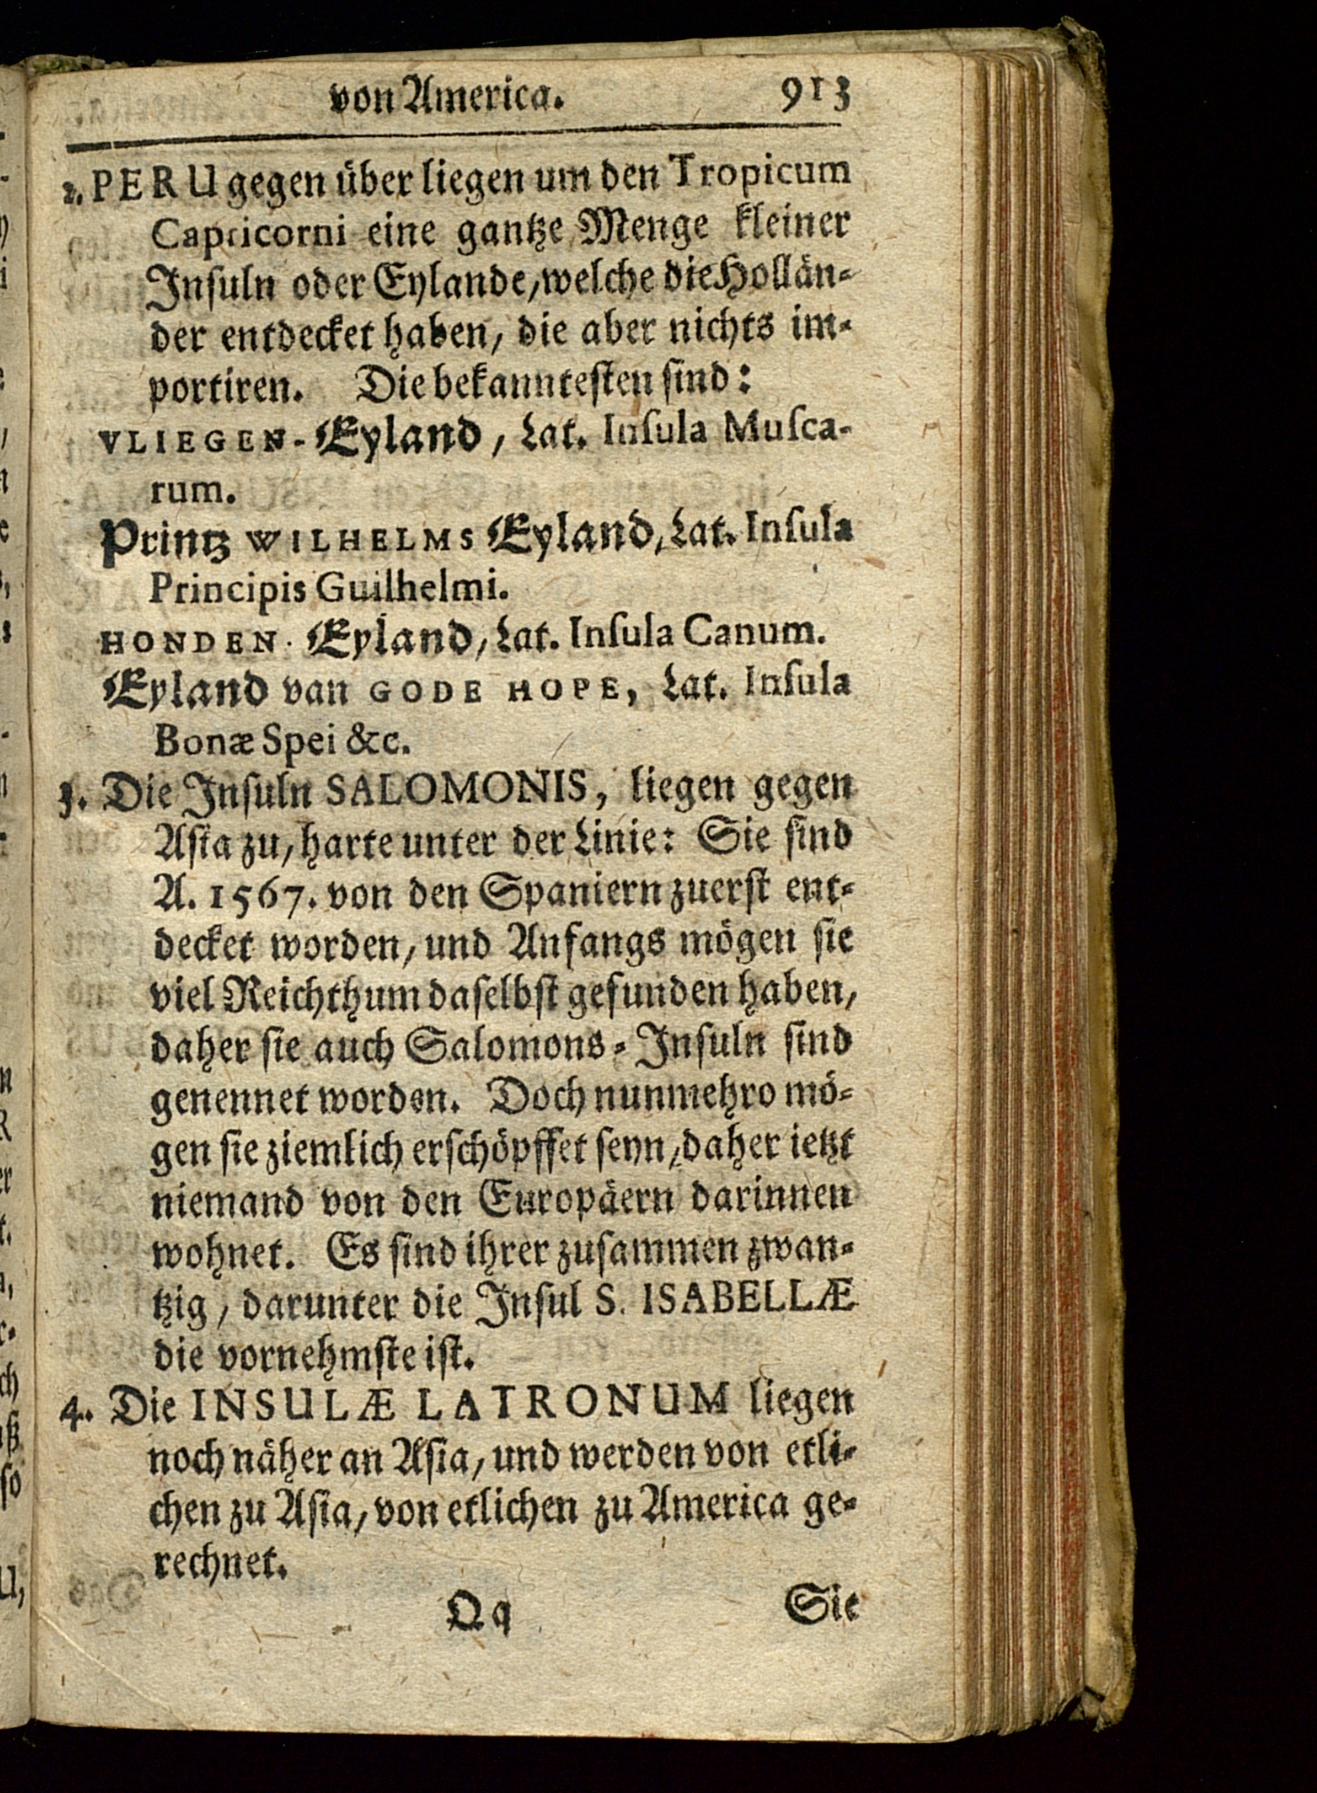 von America. 913
2. PERU gegen über liegen um den Tropicum
Capricorni eine gantze Menge kleiner
Insuln oder Eylande, welche die Hollän-
der entdecket haben, die aber nichts im-
portiren. Die bekanntesten sind:
VLIEGEN-Eyland, Lat. Insula Musca-
rum.
Printz WILHELMS Eyland, Lat. Insula
Principis Guilhelmi.
HONDEN-Eyland, Lat. Insula Canum.
Eyland van GODE HOPE, Lat. Insula
Bonæ Spei &c.
3. Die Insuln SALOMONIS, liegen gegen
Asia zu, harte unter der Linie: Sie sind
A. 1567. von den Spaniern zuerst ent-
decket worden, und Anfangs mögen sie
viel Reichthum daselbst gefunden haben,
daher sie auch Salomons-Insuln sind
genennet worden. Doch nunmehro mö-
gen sie ziemlich erschöpffet seyn, daher ietzt
niemand von den Europäern darinnen
wohnet. Es sind ihrer zusammen zwan-
tzig, darunter die Insul S. ISABELLÆ
die vornehmste ist.
4. Die INSULÆ LATRONUM liegen
noch näher an Asia, und werden von etli-
chen zu Asia, von etlichen zu America ge-
rechnet.
Qq Sie